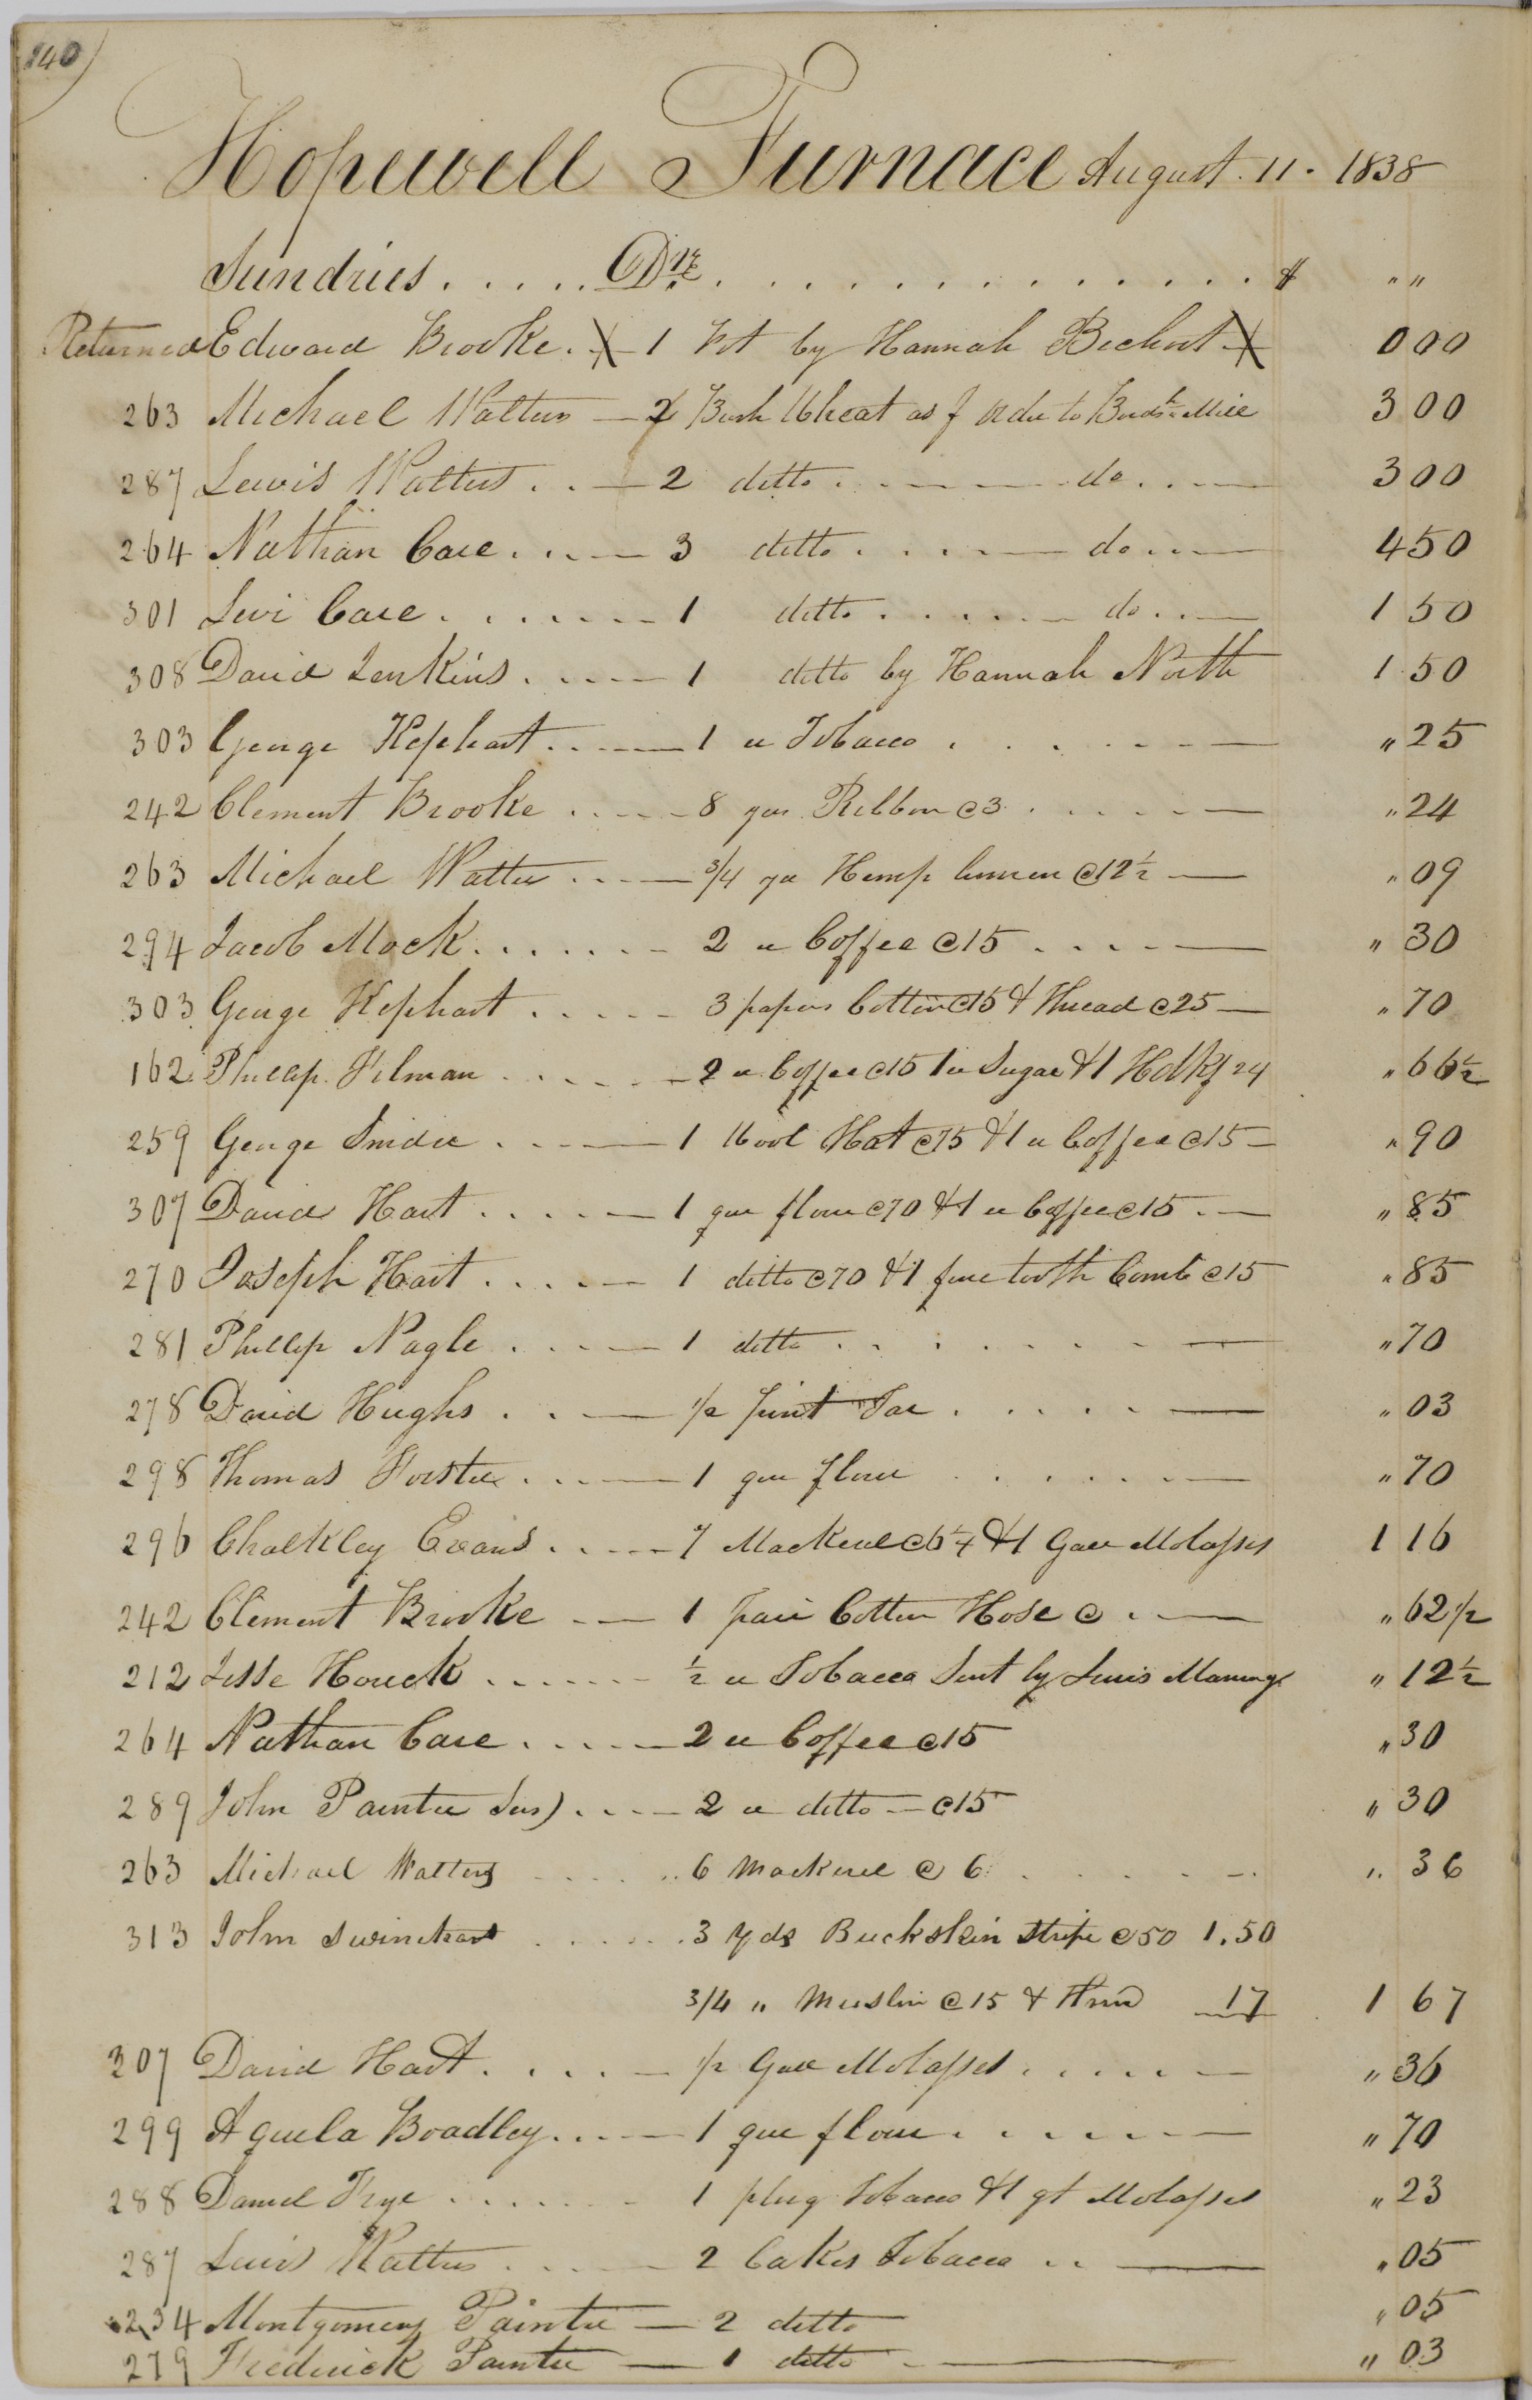 140)
Hopewell Furnace August. 11. 1838
Sundries . . . . . Dr. . . . . . . . . . . . . $ " "
Returned Edward Brooke. X 1 Pot by Hannah Bechort X 000
263 Michael Watters — 2 Bush Wheat as pr order to Birds Mill 3 00
287 Lewis Watters . . — 2 ditto . . . — do . . . — 3 00
264 Nathan Care . . . — 3 ditto . . . . — do . . . — 4 50
301 Levi Care . . . . . . . — 1 ditto . . . . . — do . . . — 1 50
308 David Jenkins . . . . — 1 ditto by Hannah North 1 50
303 George Kephart . . . — 1 lb Tobacco . . . . . . — " 25
242 Clement Brooke . . . . — 8 yds Ribbon @ 3 . . . . . — " 24
263 Michael Watters . . . — 3/4 yd Hemp linnen @ 12 1/2 — " 09
294 Jacob Mock . . . . . . — 2 lb Coffee @ 15 . . . . — " 30
303 George Kephart . . . . . 3 papers Cotton @ 15 & Thread @ 25 — " 70
162 Phillip Filman . . . . . — 2 lb Coffee @ 15 1 lb Sugar & 1 Hdkf 24 " 66 1/2
259 George Snider . . . — 1 Wool Hat @ 75 & 1 lb Coffee @ 15 — " 90
307 David Hart . . . . . — 1 qur flour @ 70 & 1 lb Coffee @ 15 . — " 85
270 Joseph Hart . . . . . — 1 ditto @ 70 & 1 fine tooth Comb @ 15 " 85
281 Phillip Nagle . . . . — 1 ditto . . . . . . . — " 70
278 David Hughs . . . — 1/2 pint Tar . . . . . — " 03
298 Thomas Forster . . . — 1 qur flour . . . . . . — " 70
296 Chalkley Evans . . . . — 7 Mackerel @ 6 1/4 & 1 Gall Molasses 1 16
242 Clement Brooke . . — 1 pair Cotton Hose @ . . — " 62 1/2
212 Jesse Houck . . . . . . . 1/2 lb Tobacco Sent by Lewis Manings " 12 1/2
264 Nathan Care . . . . — 2 lb Coffee @ 15 " 30
289 John Painter Senr) . . . — 2 lb ditto — @ 15 " 30
263 Michael Watters . . . . . . 6 Mackerel @ 6 . . . . . . — " 36
313 John Swinehart . . . . . . 3 Yds Buckskin Stripe @ 50 1.50
3/4 " Muslin @ 15 & Thrd 17 1 67
307 David Hart . . . . — 1/2 Gall Molasses . . . . . — " 36
299 Aquila Boadley . . . — 1 qur flour . . . . . . — " 70
288 Daniel Frye . . . . . . . 1 plug Tobacco & 1 qt Molasses " 23
287 Lewis Watters . . . . — 2 Cakes Tobacco . . — " 05
234 Montgomery Painter — 2 ditto " 05
279 Frederick Painter — 1 ditto . — " 03